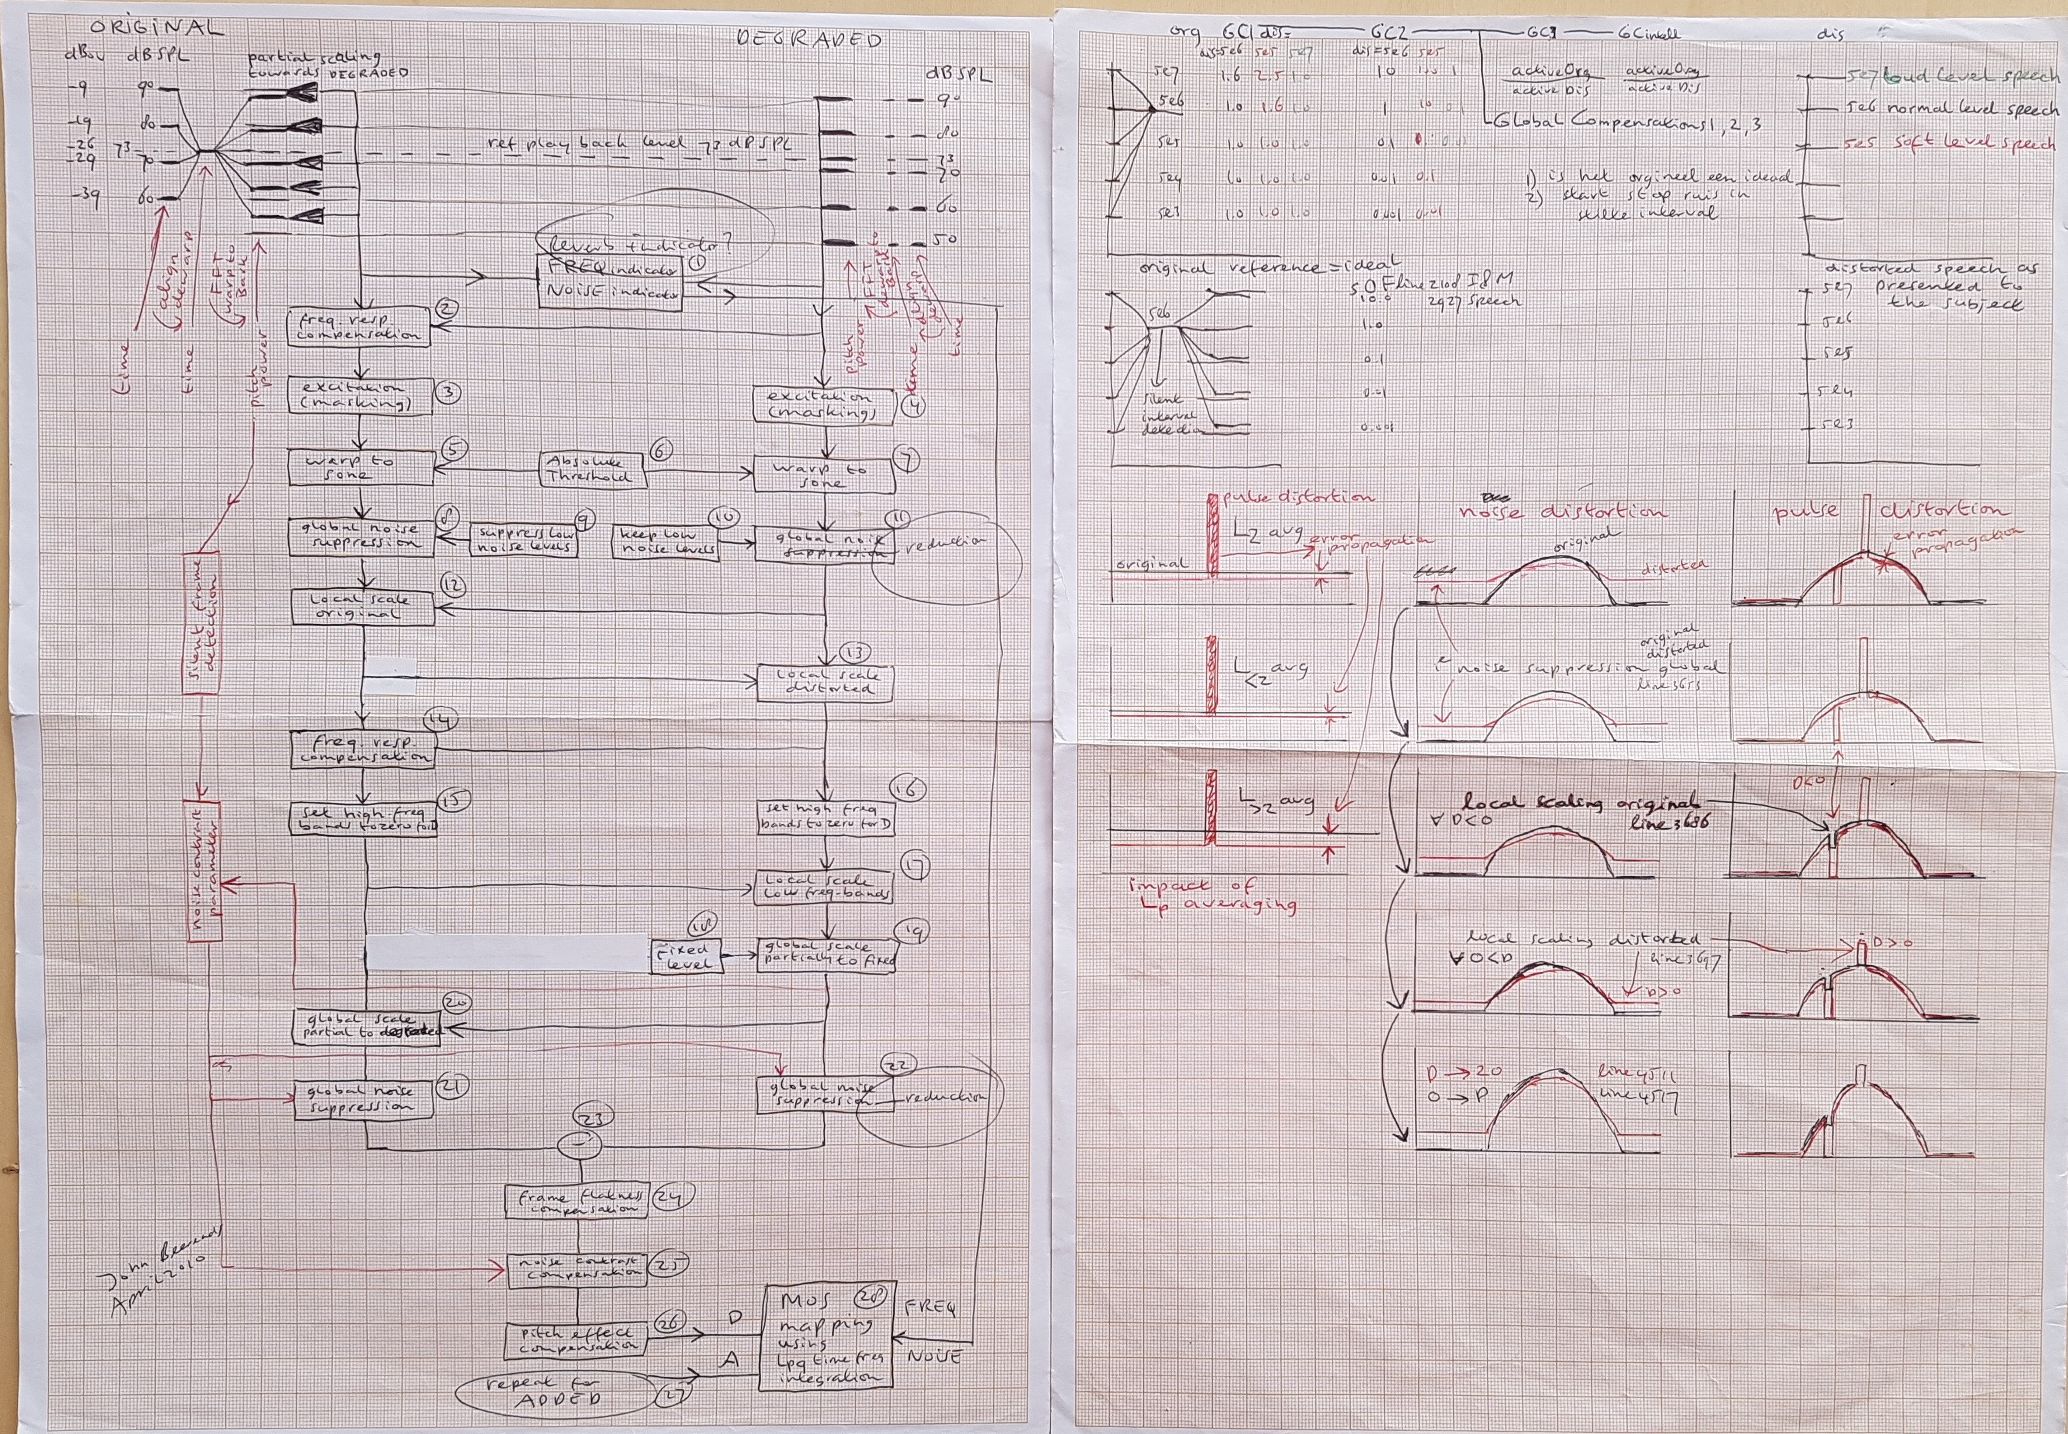 ORIGINAL
dBov dBSPL
partial scaling
towards DEGRADED
-9 90
-19 80
-26 73
-29 70
-39 60
ref playback level 73 dB SPL
DEGRADED
dBSPL
90
80
73
70
60
50
time
align
dewarp
time
FFT
warp to
Bark
pitch
power
pitch
power
FFT
time
time
Reverb indicator?
FREQ indicator
NOISE indicator
1
freq. resp.
compensation
2
excitation
(masking)
3
excitation
(masking)
4
warp to
sone
5
Absolute
Threshold
6
warp to
sone
7
global noise
suppression
8
suppress low
noise levels
9
keep low
noise levels
10
global noise
suppression
11
reduction
silent frame
detection
Local scale
original
12
Local scale
distorted
13
freq. resp.
compensation
14
set high freq
bands to zero for D
15
set high freq
bands to zero for D
16
noise contrast
parameter
Local scale
Low freq-bands
17
Fixed
level
18
global scale
partially to fixed
19
global scale
partial to degraded
20
global noise
suppression
21
global noise
suppression
22
reduction
23
-
frame flatness
compensation
24
noise contrast
compensation
25
pitch effect
compensation
26
D
A
repeat for
ADDED
27
MOS
mapping
using
Lpq time freq
integration
28
FREQ
NOISE
John Beerends
April 2010
org GC1 dis= GC2 GC3 GCintell
dis=5e6 5e5 5e7 dis=5e6 5e5
5e7 1.6 2.5 1.0 10
5e6 1.0 1.6 1.0 1 10
5e5 1.0 1.0 1.0 0.1
5e4 1.0 1.0 1.0 0.01 0.1
5e3 1.0 1.0 1.0 0.001 0.01
activeOrg activeOrg
activeDis activeDis
Global Compensations 1, 2, 3
1) is het orgineel een ideaal
2) start stop ruis in
stilte interval
dis
5e7 loud level speech
5e6 normal level speech
5e5 soft level speech
original reference = ideal
5e6
10.0
1.0
0.1
0.01
0.001
2927 speech
silent
interval
detection
distorted speech as
presented to
the subject
5e7
5e6
5e5
5e4
5e3
pulse distortion
L2 avg
error
propagation
original
L<2 avg
L>2 avg
impact of
Lp averaging
noise distortion
original
distorted
original
distorted
noise suppression global
line 3653
local scaling original
∀ D<0
line 3686
local scaling distorted
∀ 0<D
line 3697
D>0
D → 20
O → P
line 4511
line 4517
pulse distortion
error
propagation
D<0
D>0